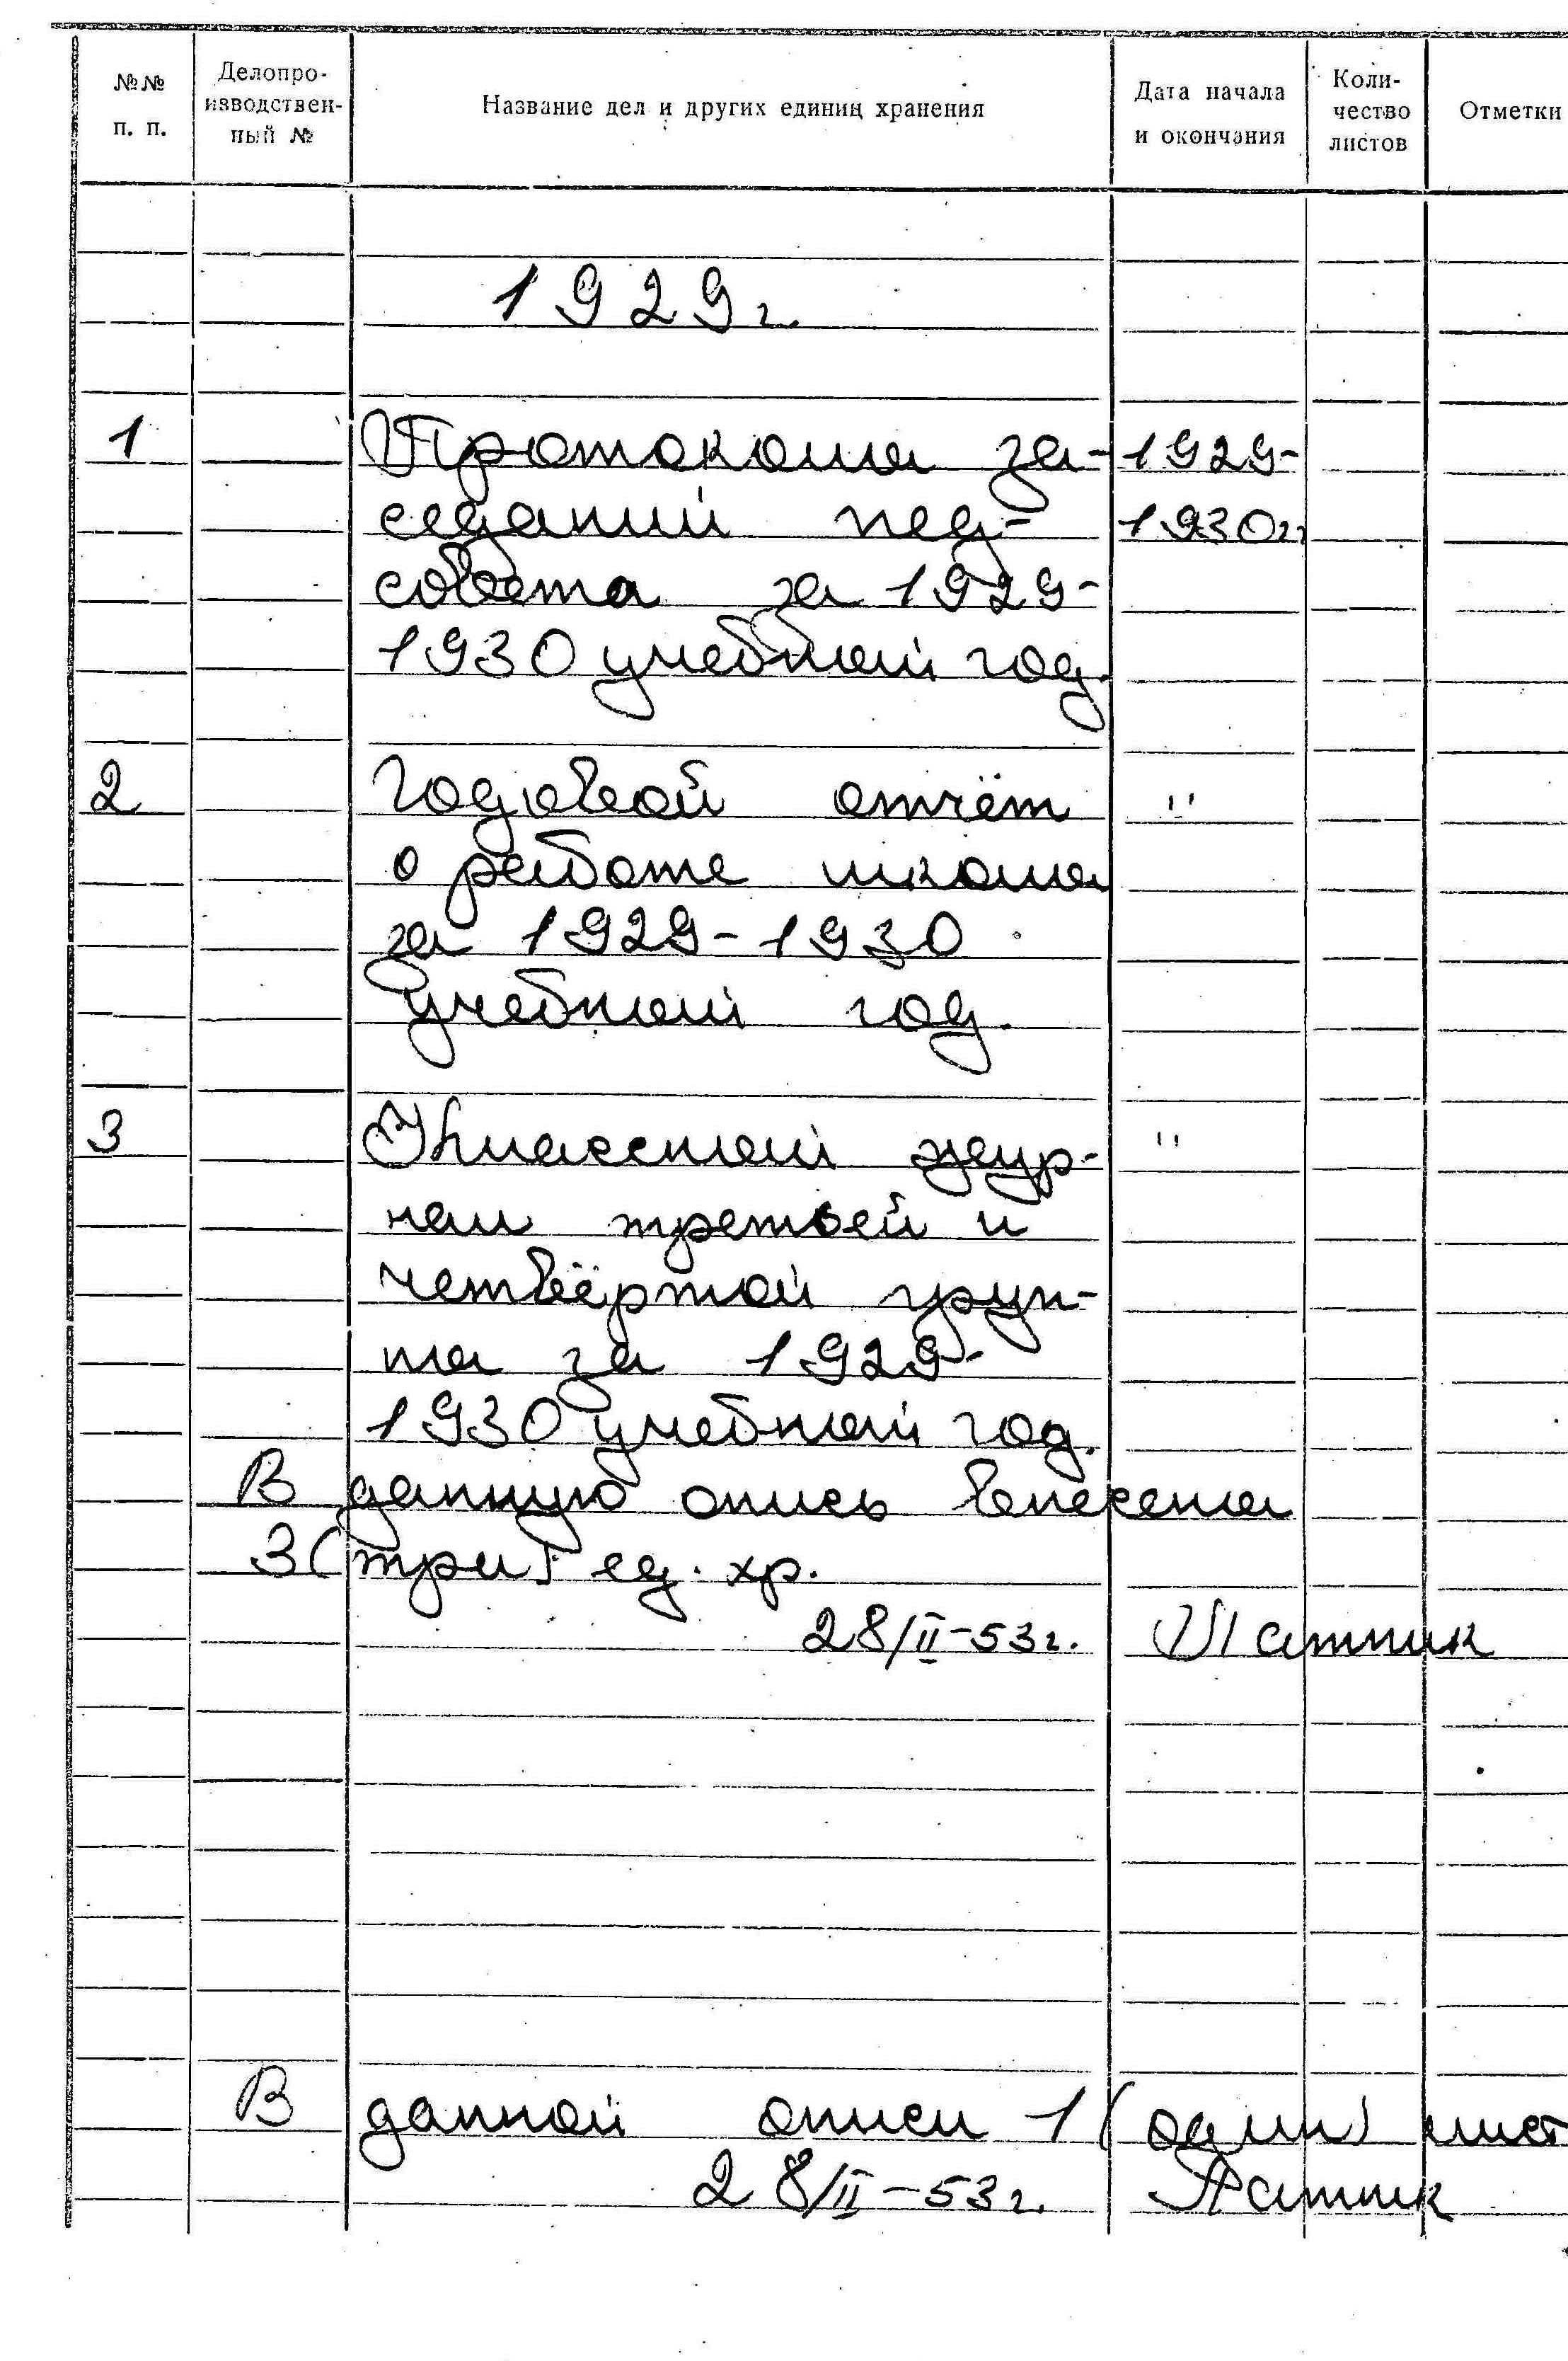 №№ п. п.
Делопро-
изводствен-
ный №
Название дел и других единиц хранения
Дата начала
и окончания
Коли-
чество
листов
Отметки
1929г.
1 Протоколы за- 1929-
седаний пед- 1930гг
совета за 1929-
1930 учебный год.
2 Годовой отчёт "
о работе школы
за 1929-1930
учебный год.
3 Классный жур- "
нал третьей и
четвёртой груп-
пы за 1929-
1930 учебный год.
В данную опись внесены
3 (три) ед. хр.
28/II-53г.
В данной описи 1 (один) лист
28/II-53г.